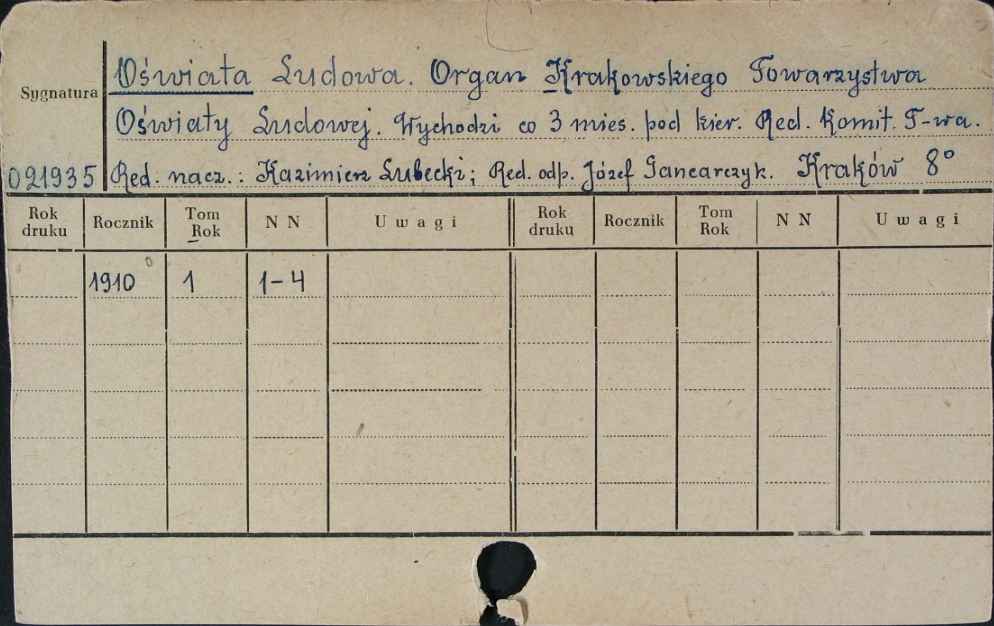 Oświata Ludowa. Organ Krakowskiego Towarzystwa
Sygnatura
Oświaty Ludowej. Wychodzi co 3 mies. pod kier. Red. Komit. T-wa.
021935 Red. nacz.: Kazimierz Lubecki; Red. odp. Józef Gancarczyk. Kraków 8°
Rok druku Rocznik Tom Rok N N Uwagi Rok druku Rocznik Tom Rok N N Uwagi
1910 1 1-4